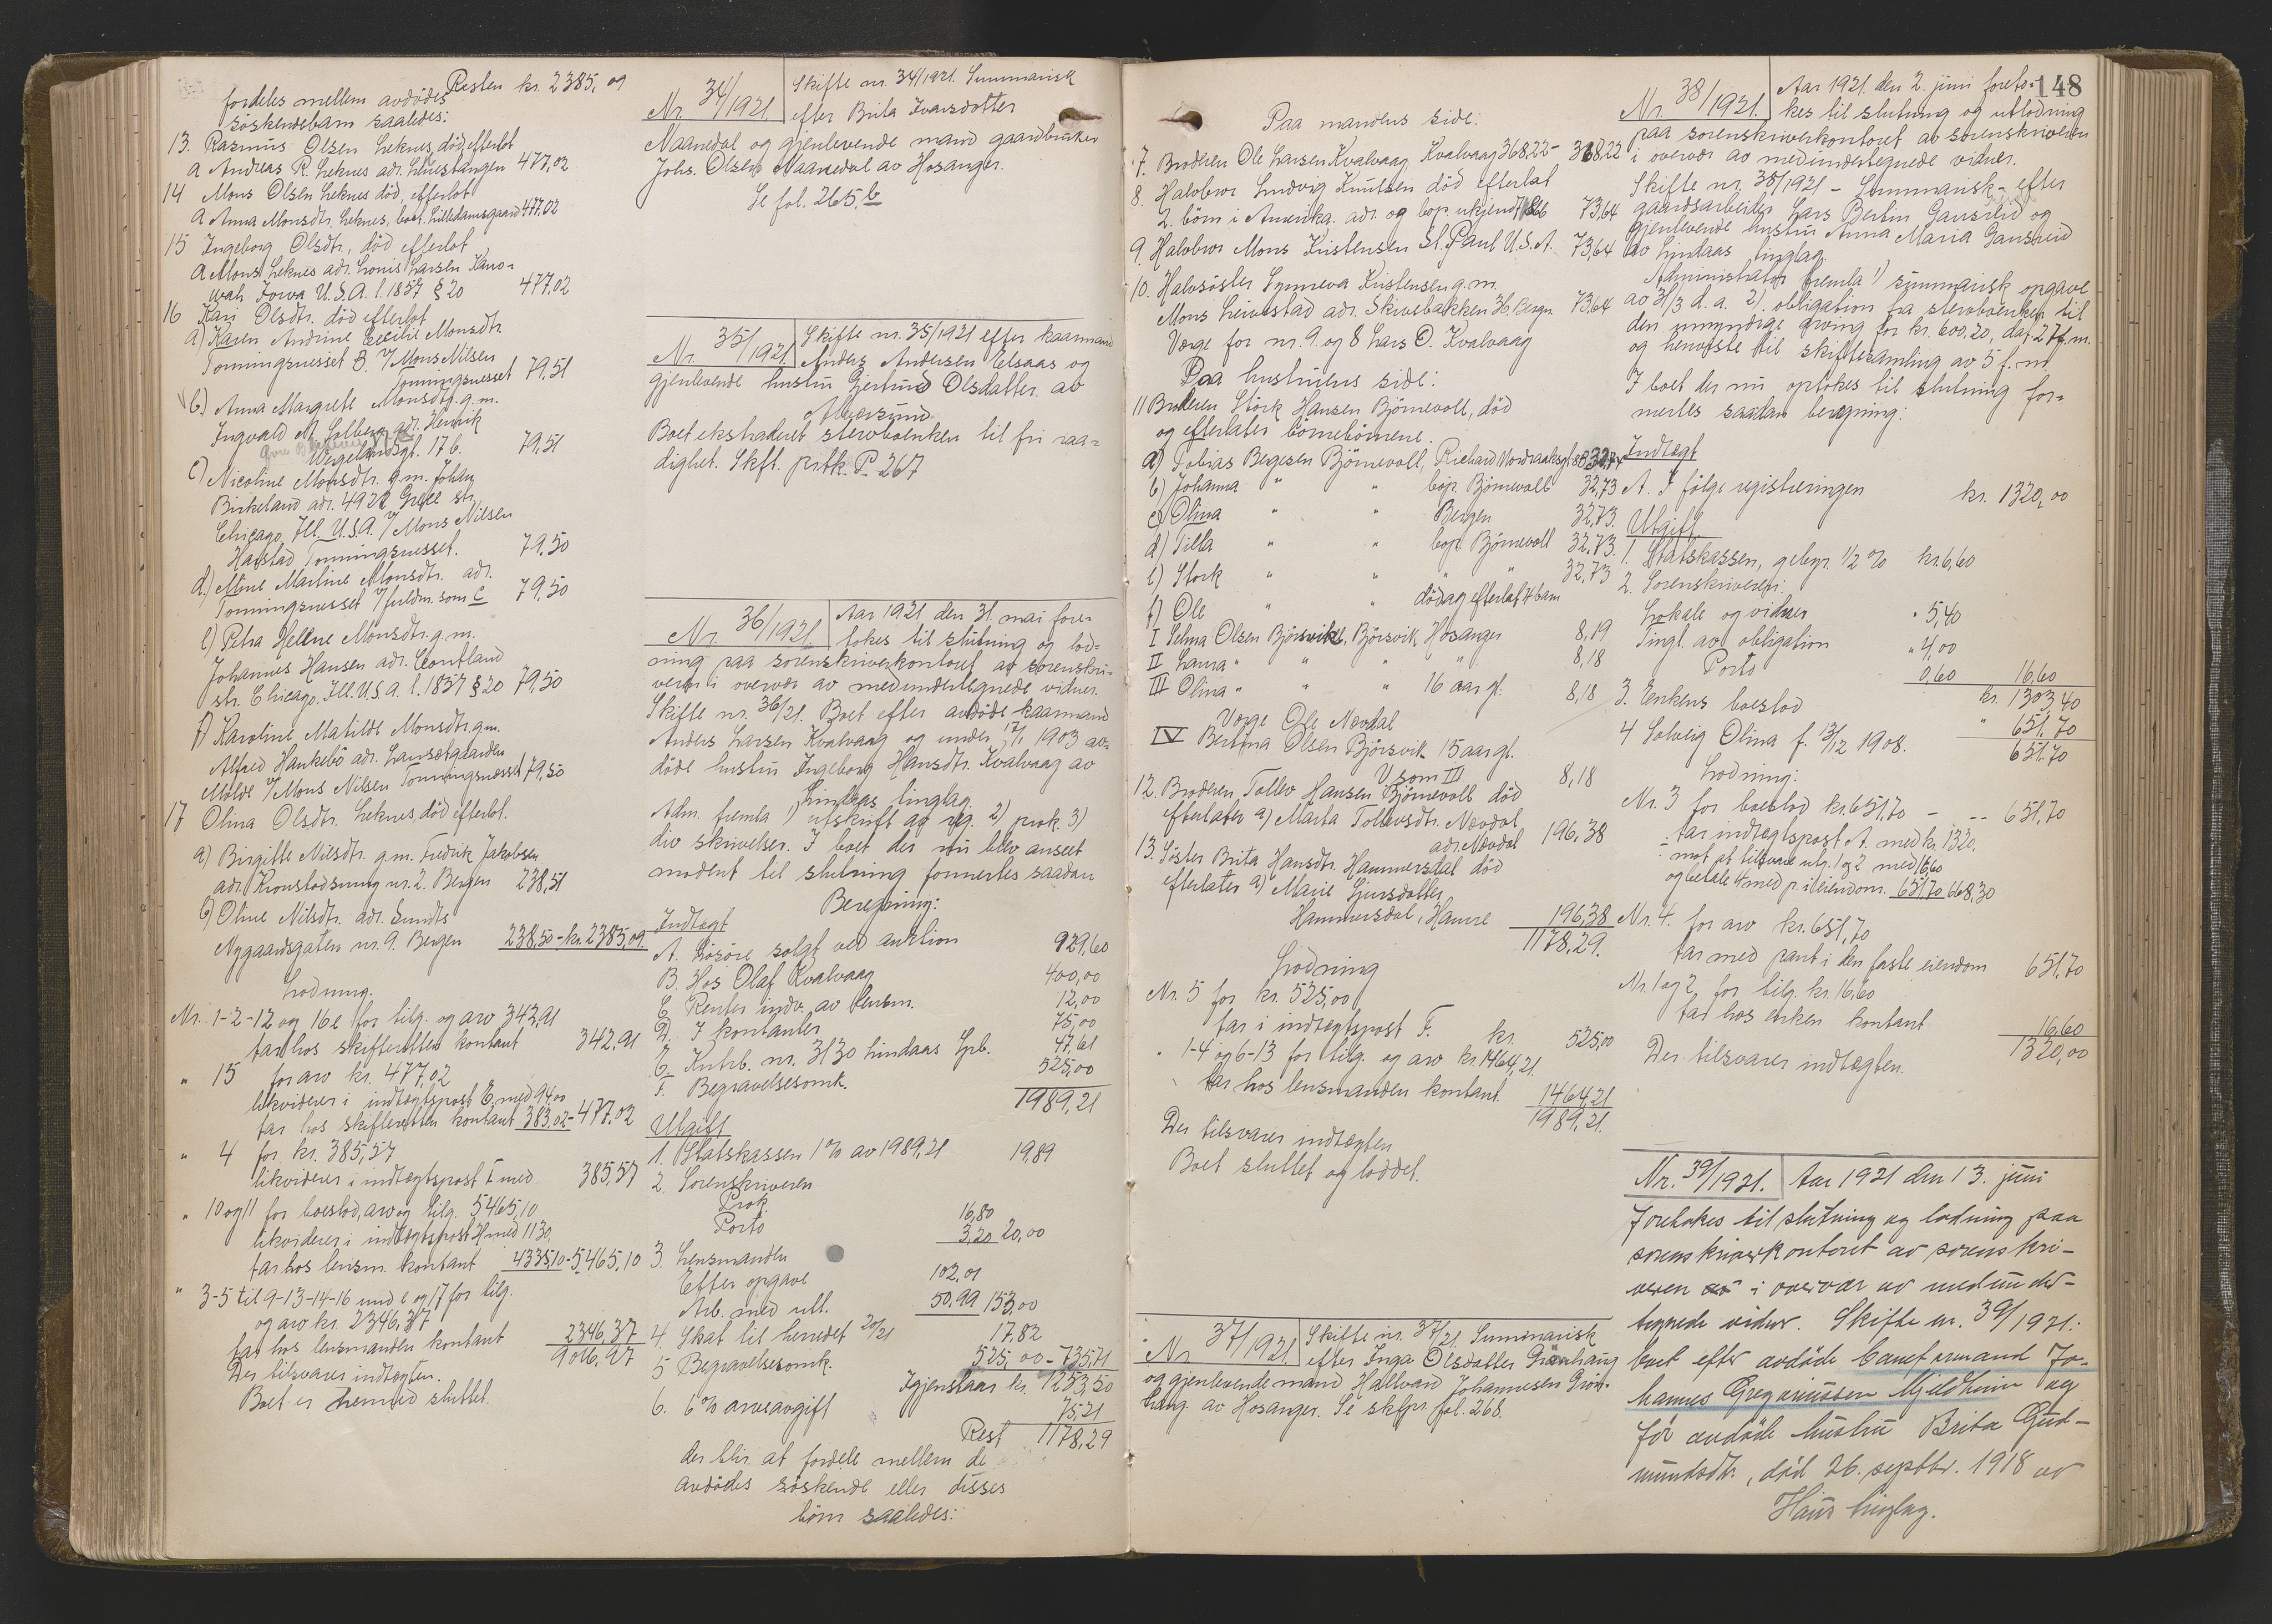 Resten kr. 2385,09
fordeles mellem avdødes
søskendebarn saaledes:
13 Rasmus Olsen Leknes, død, efterlot
a Andreas R. Leknes adr. 477,02
14 Mons Olsen Leknes død, efterlot
a Anna Monsdtr. Leknes, boet. Lilledamsgaard 477,02
15 Ingeborg Olsdtr., død efterlot
a Mons Leknes adr. Louis Larsen
Iowa U.S.A. l. 1857 § 20 477,02
16 Kari Olsdtr. død efterlot
a) Karen Andrine Cecilie Monsdtr.
Tonningsnesset B. v/ Mons Nilsen
Tonningsnesset 79,51
b) Anna Margrete Monsdtr. g.m.
Ingvald M. Solberg adr. Henrik
Wergelandsgt. 17 b. 79,51
c) Nicoline Monsdtr. g.m. Johan
Birkeland adr. 4922 str.
Chicago, Ill. U.S.A. v/ Mons Nilsen
Harstad Tonningsnesset. 79,50
d) Mine Martine Monsdtr. adr.
Tonningsnesset v/ fuldm. som c 79,50
e) Petra Helene Monsdtr. g.m.
Johannes Hansen adr.
str. Chicago. Ill. U.S.A. l. 1857 § 20 79,50
f) Karoline Matilde Monsdtr. g.m.
Alfred Hankebö adr.
Molde v/ Mons Nilsen Tonningsnesset 79,50
17 Olina Olsdtr. Leknes, død efterlot.
a) Birgitte Nilsdtr. g.m. Fredrik Jakobsen
adr. Kronstadsmug nr. 2. Bergen 238,51
b) Oline Nilsdtr. adr. Sundts
Nygaardsgaten nr. 9. Bergen 238,50 - kr. 2385,09
Lodning.
Nr. 1-2-12 og 16e for tilg. og arv 342,91
tar hos skifteretten kontant 342,91
" 15 for arv kr. 477,02
likviderer i indtægtspost E med 94,00
tar hos skifteretten kontant 383,02 - 477,02
" 4 for kr. 385,57
likviderer i indtægtspost I med 385,57
" 10 og 11 for boeslod, arv og tilg. 5465,10
likviderer i indtægtspost H med 1130,
tar hos lensm. kontant 4335,10 - 5465,10
" 3-5 til 9-13-14-16 und. e og 17 for tilg.
og arv kr. 2346,37
tar hos lensmanden kontant 2346,37
Der tilsvarer indtægten. 9016,97
Boet er hermed sluttet.
Nr. 34/1921. Skifte nr. 34/1921. Summarisk
efter Brita Ivarsdotter
Naanedal og gjenlevende mand gaardbruker
Johs. Olsen Naanedal av Hosanger.
Se fol. 265 b
Nr. 35/1921 Skifte nr. 35/1921 efter kaarmand
Anders Andersen Elsaas og
gjenlevende hustru Gjertrud Olsdatter av
Alversund
Boet ekstraderet stervboenken til fri raa-
dighet. Skft. prtk. P. 267
Nr. 36/1921. Aar 1921 den 31. mai fore-
tokes til slutning og lod-
ning paa sorenskriverkontoret av sorenskri-
veren i overvær av medundertegnede vidner.
Skifte nr. 36/21. Boet efter avdøde kaarmand
Anders Larsen Kvalvaag og under 17/1 1903 av-
døde hustru Ingeborg Hansdtr. Kvalvaag av
Lindaas tinglag.
Adm. fremla 1) utskrift av reg. 2) prok. 3)
div skrivelser. I boet der nu blev anseet
modent til slutning formertes saadan
Beregning:
Indtægt
A. Løsøre solgt ved auktion 929,60
B. Hos Olaf Kvalvaag 400,00
C. Renter indv. av lensm. 12,00
D. I kontanter 75,00
E. Kntrb. nr. 3130 Lindaas Spb. 47,61
F. Begravelsesomk. 525,00
1989,21
Utgift
1. Statskassen 1% av 1989,21 19,89
2. Sorenskriveren
Prok. 16,80
Porto 3,20 20,00
3. Lensmanden
Efter opgave 102,01
Arb. med utl. 50,99 153,00
4. Skat til herredet 20/21 17,82
5 Begravelsesomk. 525,00 - 735,71
Igjenstaar kr. 1253,50
6. 6% arveavgift 75,21
Rest 1178,29
der blir at fordele mellem de
avdødes søskende eller disses
børn saaledes:
Paa mandens side:
7. Broderen Ole Larsen Kvalvaag, Kvalvaag 368,22 - 368,22
8. Halvbror Ludvig Knutsen død efterlat
2 børn i Amerika. adr. og bop. ukjendt 73,64
9. Halvbror Mons Kristensen St. Paul U.S.A. 73,64
10. Halvsøster Synneva Kristensen g.m.
Mons Leivestad adr. Skivebakken 36, Bergen 73,64
Verge for nr. 9 og 8 Lars O. Kvalvaag
Paa hustruens side:
11 Broderen Störk Hansen Björnevoll, død
og efterlater børnebørnene.
a) Tobias Bergesen Björnevoll, Richard Nordraaksgt. 32,74
b) Johanna " " bop. Björnevoll 32,73
c) Olina " " Bergen 32,73.
d) Tilla " " bop. Björnevoll 32,73.
e) Störk " " " " 32,73
f) Ole " " død og efterlat 4 barn
I Selma Olsen Björsvik, Björsvik Hosanger 8,19
II Laura " " " " 8,18
III Olina " " " 16 aar gl. 8,18
Verge Ole Nævdal
IV Bertina Olsen Björsvik 15 aar gl.
V. som III 8,18
12. Broderen Tollev Hansen Björnevoll død
efterlater a) Marta Tollevsdtr. Nævdal
adr. Nævdal 196,38
13. Søster Brita Hansdtr. Hammersdal død
efterlater a) Marie
Hammersdal, Hamre 196,38
1178,29.
Lodning
Nr. 5 for kr. 525,00
tar i indtægtspost F. kr. 525,00
" 1-4 og 6-13 for tilg. og arv kr. 1464,21
tar hos lensmanden kontant. 1464,21
1989,21.
Der tilsvarer indtægten
Boet sluttet og loddet.
Nr. 37/1921. Skifte nr. 37/21. Summarisk
efter Inga Olsdatter Grönhaug
og gjenlevende mand Hallvard Johannesen Grön-
haug av Hosanger. Se skfpr. fol. 268.
148
Nr. 38/1921. Aar 1921. den 2. juni foreto-
kes til slutning og utlodning
paa sorenskriverkontoret av sorenskriveren
i overvær av medundertegnede vidner.
Skifte nr. 38/1921 - Summarisk - efter
gaardsarbeider Lars Bertin Gausreid og
gjenlevende hustru Anna Maria Gausreid
av Lindaas tinglag.
Administrator fremla 1) summarisk opgave
av 31/3 d.a. 2). obligation fra stervboenken til
den umyndige arving for kr. 600,20, dat. 27 f.m.
og henviste til skiftesamling av 5 f.m.
I boet der nu optokes til slutning for-
mertes saadan beregning:
Indtægt
A. I følge registreringen kr. 1320,00
Utgift.
1. Statskassen, gebyr. 1/2 % kr. 6,60
2. Sorenskriveren:
Lokale og vidner " 5,40
Tingl. av obligation " 4,00
Porto 0,60 16,60
kr. 1303,40
3. Enkens boeslod " 651,70
4 Solveig Olina f. 13/12 1908. 651,70
Lodning:
Nr. 3 for boeslod kr. 651,70 - -- 651,70
tar indtægtspost A. med kr. 1320,
mot at tilsvare utg. 1 og 2 med 16,60
og betale 4 med p. i eiendom. 651,70 668,30
Nr. 4. for arv kr. 651,70
tar med pant i den faste eiendom 651,70
Nr. 1 og 2 for tilg. kr. 16,60
tar hos enken kontant 16,60
Der tilsvarer indtægten. 1320,00
Nr. 39/1921. Aar 1921 den 13. juni
foretokes til slutning og lodning paa
sorenskriverkontoret av sorenskri-
veren i overvær av medunder-
tegnede vidner. Skifte nr. 39/1921:
boet efter avdøde kaarmand Jo-
hannes Gregoriussen Mjeldheim og
før avdøde hustru Brita Gud-
mundsdtr., død 26. septbr. 1918 av
Haus tinglag.